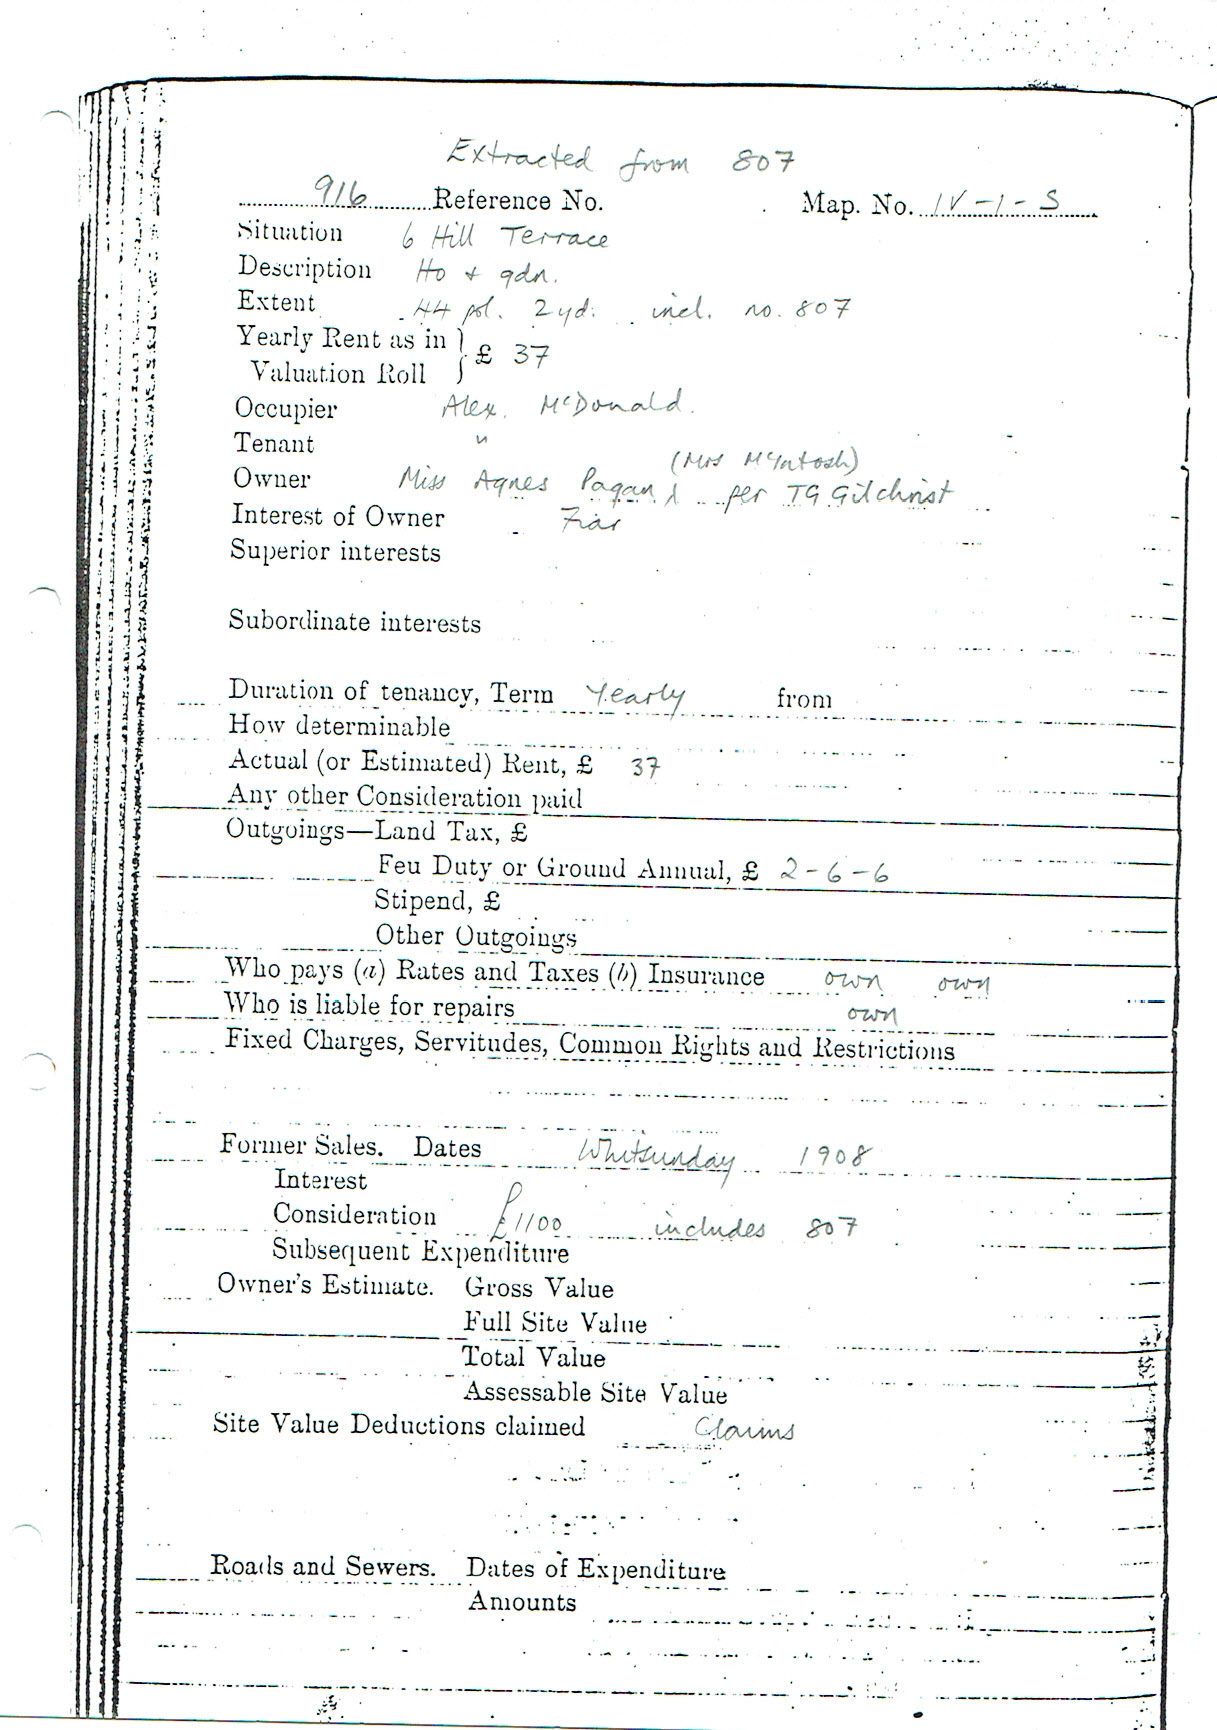 Extracted from 807
916 Reference No. Map. No. IV-1-S
Situation 6 Hill Terrace
Description Ho + gdn.
Extent 44 pol. 2 yd. incl. no. 807
Yearly Rent as in } £ 37
Valuation Roll
Occupier Alex. McDonald.
Tenant "
(Mrs McIntosh)
Owner Miss Agnes Pagan per TG Gilchrist
Interest of Owner Fiar
Superior interests
Subordinate interests
Duration of tenancy, Term Yearly from
How determinable
Actual (or Estimated) Rent, £ 37
Any other Consideration paid
Outgoings—Land Tax, £
Feu Duty or Ground Annual, £ 2-6-6
Stipend, £
Other Outgoings
Who pays (a) Rates and Taxes (b) Insurance own own
Who is liable for repairs own
Fixed Charges, Servitudes, Common Rights and Restrictions
Former Sales. Dates Whitsunday 1908
Interest
Consideration £1100 includes 807
Subsequent Expenditure
Owner's Estimate. Gross Value
Full Site Value
Total Value
Assessable Site Value
Site Value Deductions claimed Claims
Roads and Sewers. Dates of Expenditure
Amounts